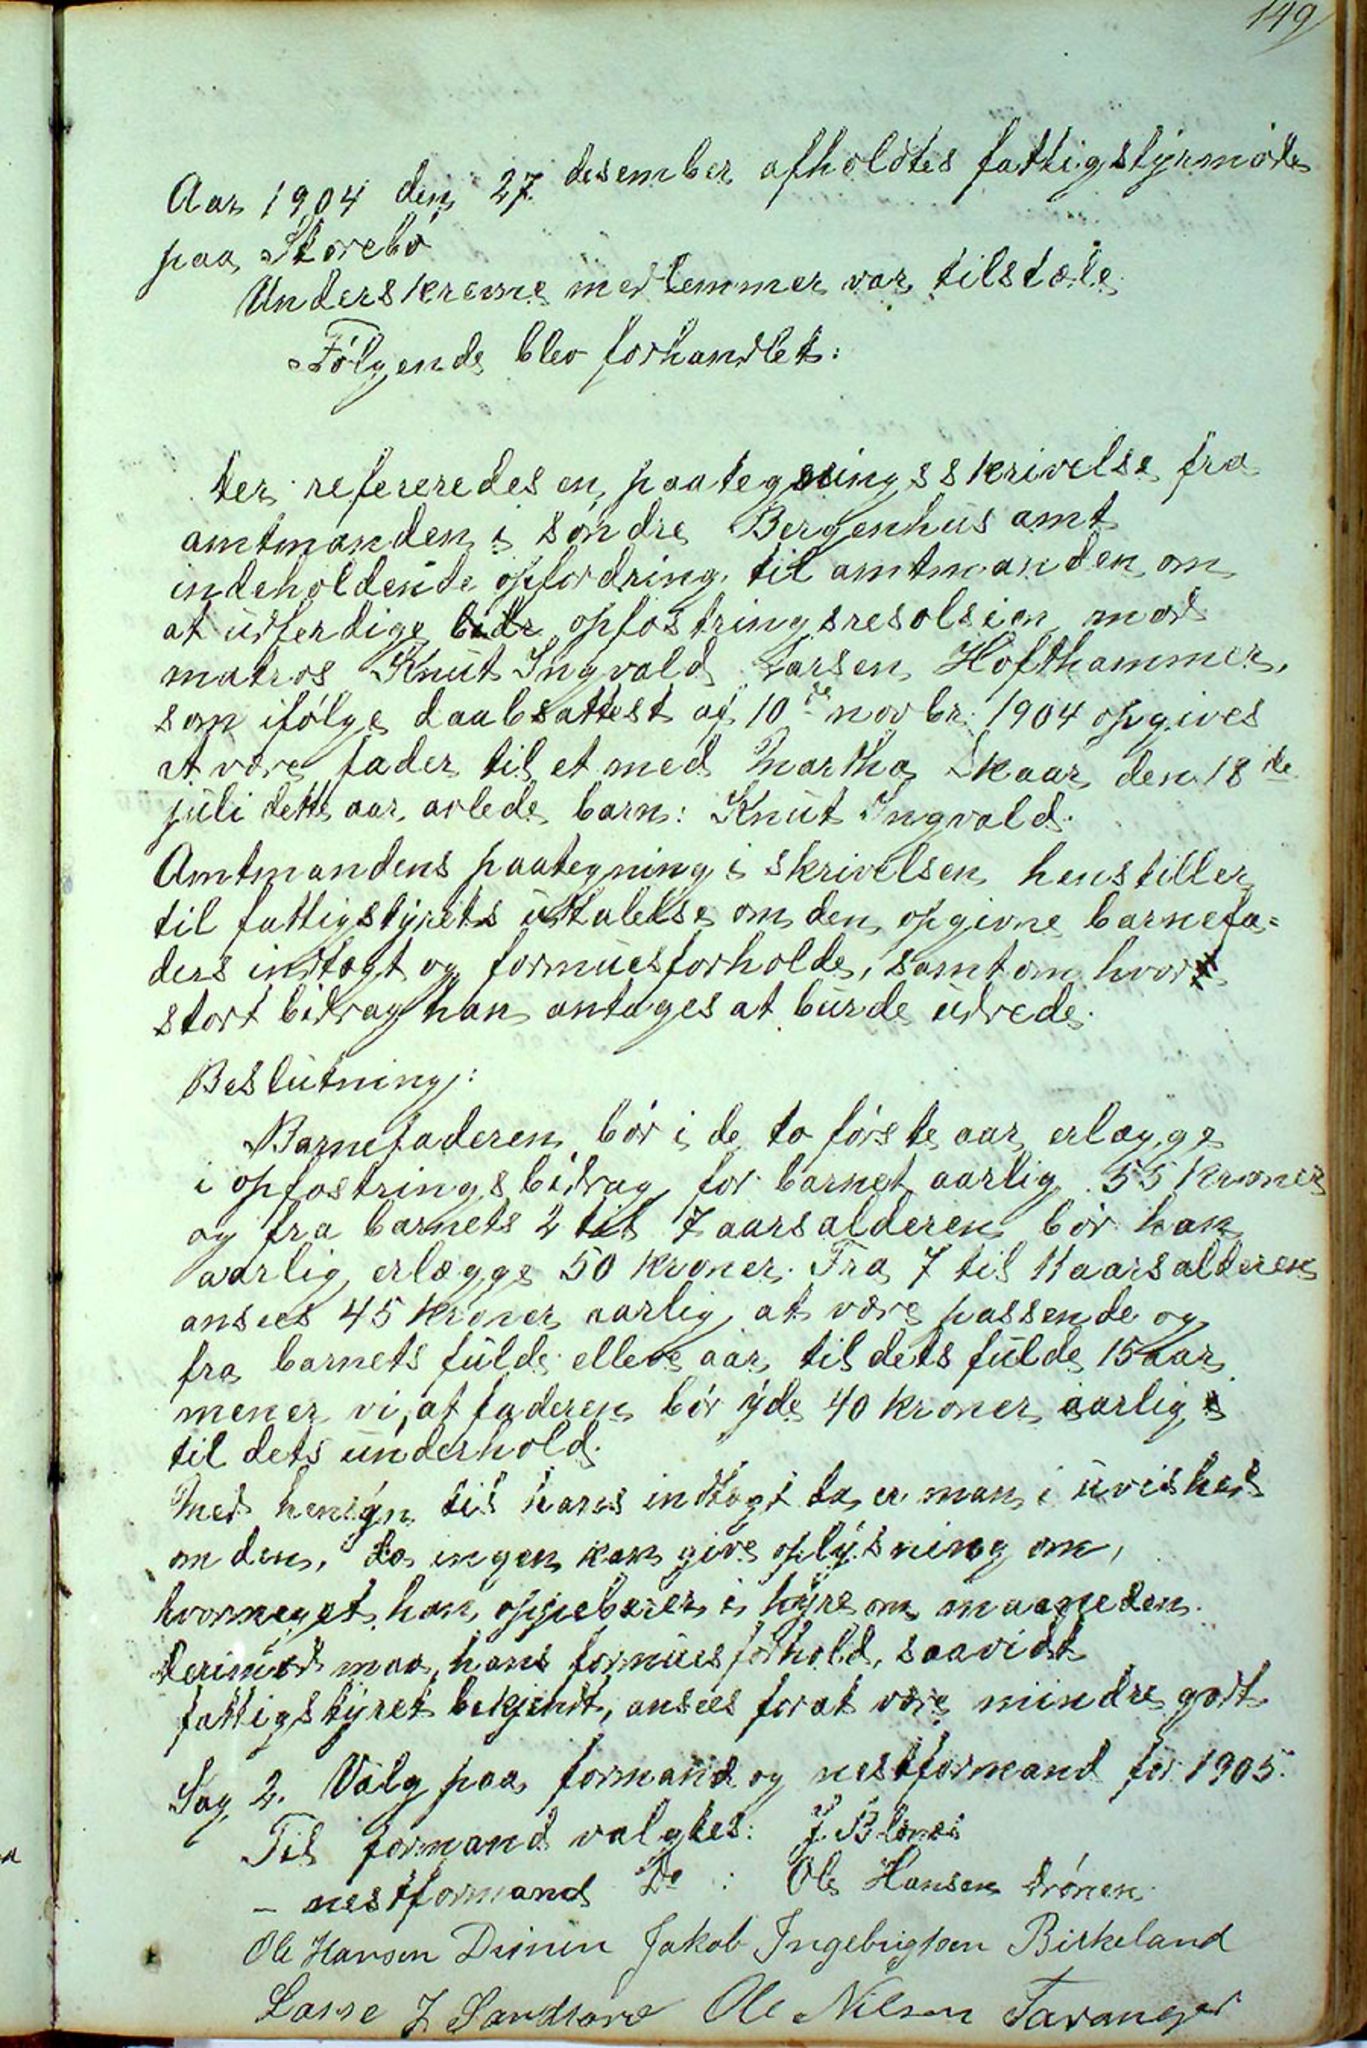 149
Aar 1904 den 27 desember afholdtes fattigstyrmøde
paa Skorebø
Underskrevne medlemmer var tilstæde
Følgende blev forhandlet:
Der refereredes en paategningsskrivelse fra
amtmanden i søndre Bergenhus amt
indeholdende opfordring til amtmanden om
at udferdige opfostringsresolsion mod
matros Knut Ingvald Larsen Hofthammer,
som ifølge daabsattest af 10de novbr. 1904 opgives
at være fader til et med Martha Skaar den 18de
juli dette aar avlede barn: Knut Ingvald.
Amtmandens paategning i skrivelsen henstiller
til fattigstyrets uttalelse om den opgivne barnefa-
ders indtægt og formuesforholde, samt om hvor
stort bidrag han antages at burde udrede.
Beslutning:
Barnefaderen bør i de to første aar erlægge
i opfostringsbidrag for barnet aarlig 55 kroner
og fra barnets 2 til 7 aarsalderen bør han
aarlig erlægge 50 kroner. Fra 7 til 11 aarsalderen
ansees 45 kroner aarlig at være passende og
fra barnets fulde elleve aar til dets fulde 15 aar
mener vi, at faderen bør yde 40 kroner aarlig
til dets underhold.
Med hensyn til hans indtægt da er man i uvished
om den, da ingen kan give oplysning om,
hvormeget han oppebærer i hyre om maaneden.
Derimod maa hans formuesforhold, saavidt
fattigstyret bekjendt, ansees for at være mindre godt
Sag 2. Valg paa formand og nestformand for 1905.
Til formand valgtes: J. Blønes
– nestformand Do : Ole Hansen Drønen
Ole Hansen Drönen Jakob Ingebrigtsen Birkeland
Lasse J Sandtorv Ole Nilsen Tavanger